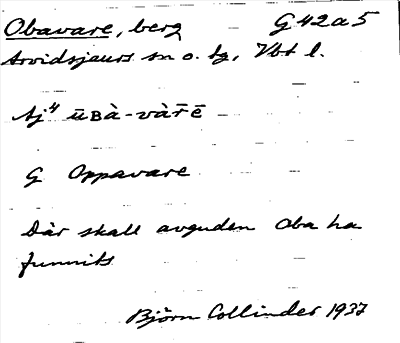 Obavare, berg G 42 a 5
Arvidsjaurs sn o. tg, Vbt l.
Aj⁴ ūʙà-vàr̄ē
G Oppavare
Där skall avguden Oba ha
funnits
Björn Collinder 1937